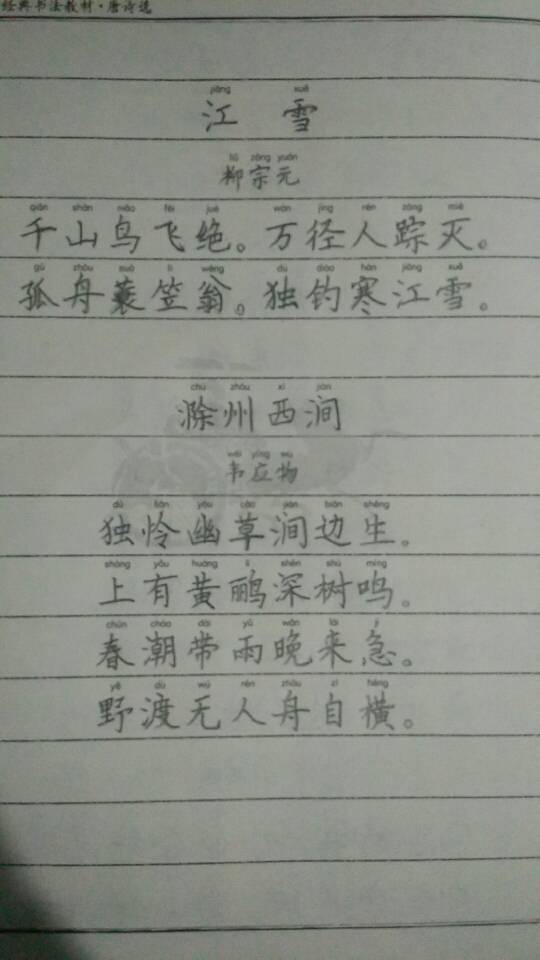 经典书法教材·唐诗选
jiāng xuě
江 雪
liǔ zōng yuán
柳宗元
qiān shān niǎo fēi jué wàn jìng rén zōng miè
千山鸟飞绝。万径人踪灭。
gū zhōu suō lì wēng dú diào hán jiāng xuě
孤舟蓑笠翁。独钓寒江雪。
chú zhōu xī jiàn
滁州西涧
wéi yìng wù
韦应物
dú lián yōu cǎo jiàn biān shēng
独怜幽草涧边生。
shàng yǒu huáng lí shēn shù míng
上有黄鹂深树鸣。
chūn cháo dài yǔ wǎn lái jí
春潮带雨晚来急。
yě dù wú rén zhōu zì héng
野渡无人舟自横。